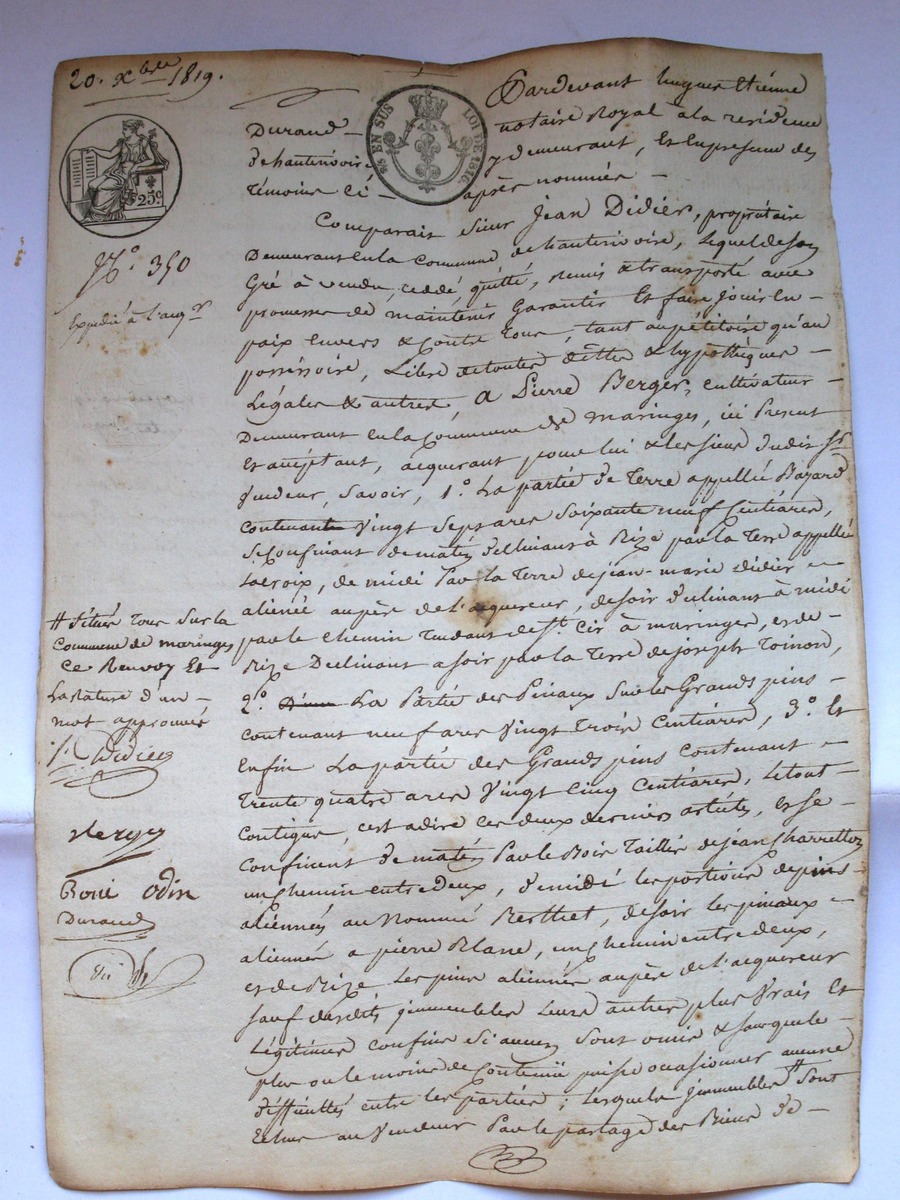 20. Xbre 1819.
25 EN SUS LOI DE 1816.
25c
No. 350
Expédié à l'acqr
Pardevant hugues Etienne
Durand notaire Royal à la residence
d'hauterivoire y demeurant, Et En presence des
témoins ci- après nommés -
Comparait Sieur Jean Didier, propriétaire
Demeurant En la Commune de hauterivoire, Lequel de son
Gré à vendu, ceddé, quitté, remis & transporté avec
promesse de maintenir Garantir Et faire jouir En -
paix Envers & Contre tous, tant au pétitoire qu'au
possessoire, Libre de toutes dettes & hypothèques -
Légales & autres, à Pierre Berger, cultivateur -
Demeurant En la Commune de maringes, ici Present
Et acceptant, acquerant pour lui & les siens dudit sr
Vendeur, Savoir, 1o. La partie de Terre appellée Bazard
contenante Vingt Sept ares Soixante neuf Centiares,
Se Confinant de matin déclinant à Bize par la Terre appellée
Lacroix, de midi Par la Terre de jean-marie didier -
alienée au père de l'acquereur, de soir déclinant à midi
par le Chemin tendant de St. Cir à maringes, et de
Bize Declinant a soir par la Terre de joseph Toinon,
2o. La Partie des Pinaux Sur les Grands pins -
contenant neuf ares Vingt Trois Centiares, 3o. Et
Enfin La partie des Grands pins Contenant -
Trente quatre ares Vingt Cinq Centiares, Le tout -
Contigue, c'est adire ces deux derniers articles, Et se -
confinent de matin Par le Bois Taillis de jean Charretton
un Chemin entre deux, de midi les portions de pins
aliennés au Nommé Berthet, de soir les pinaux -
aliennés a pierre Blanc, un chemin entre deux,
et de Bize Les pins aliennés au père de l'acquereur
Sauf desdits jmmeubles Leurs autres plus Vrais Et
Légitimes confins Si aucuns Sont omis & sans que le
plus ou le moins de Contenüe puisse ocasionner aucune
difficultés entre les parties ; Lesquels jmmeubles # Sont
Echus au Vendeur Par le partage des Biens de -
# Situés tous Sur la
Commune de maringes
Ce Renvoy Et
La rature d'un -
mot approuvés
J. Didier
Berger
Odin
Durand